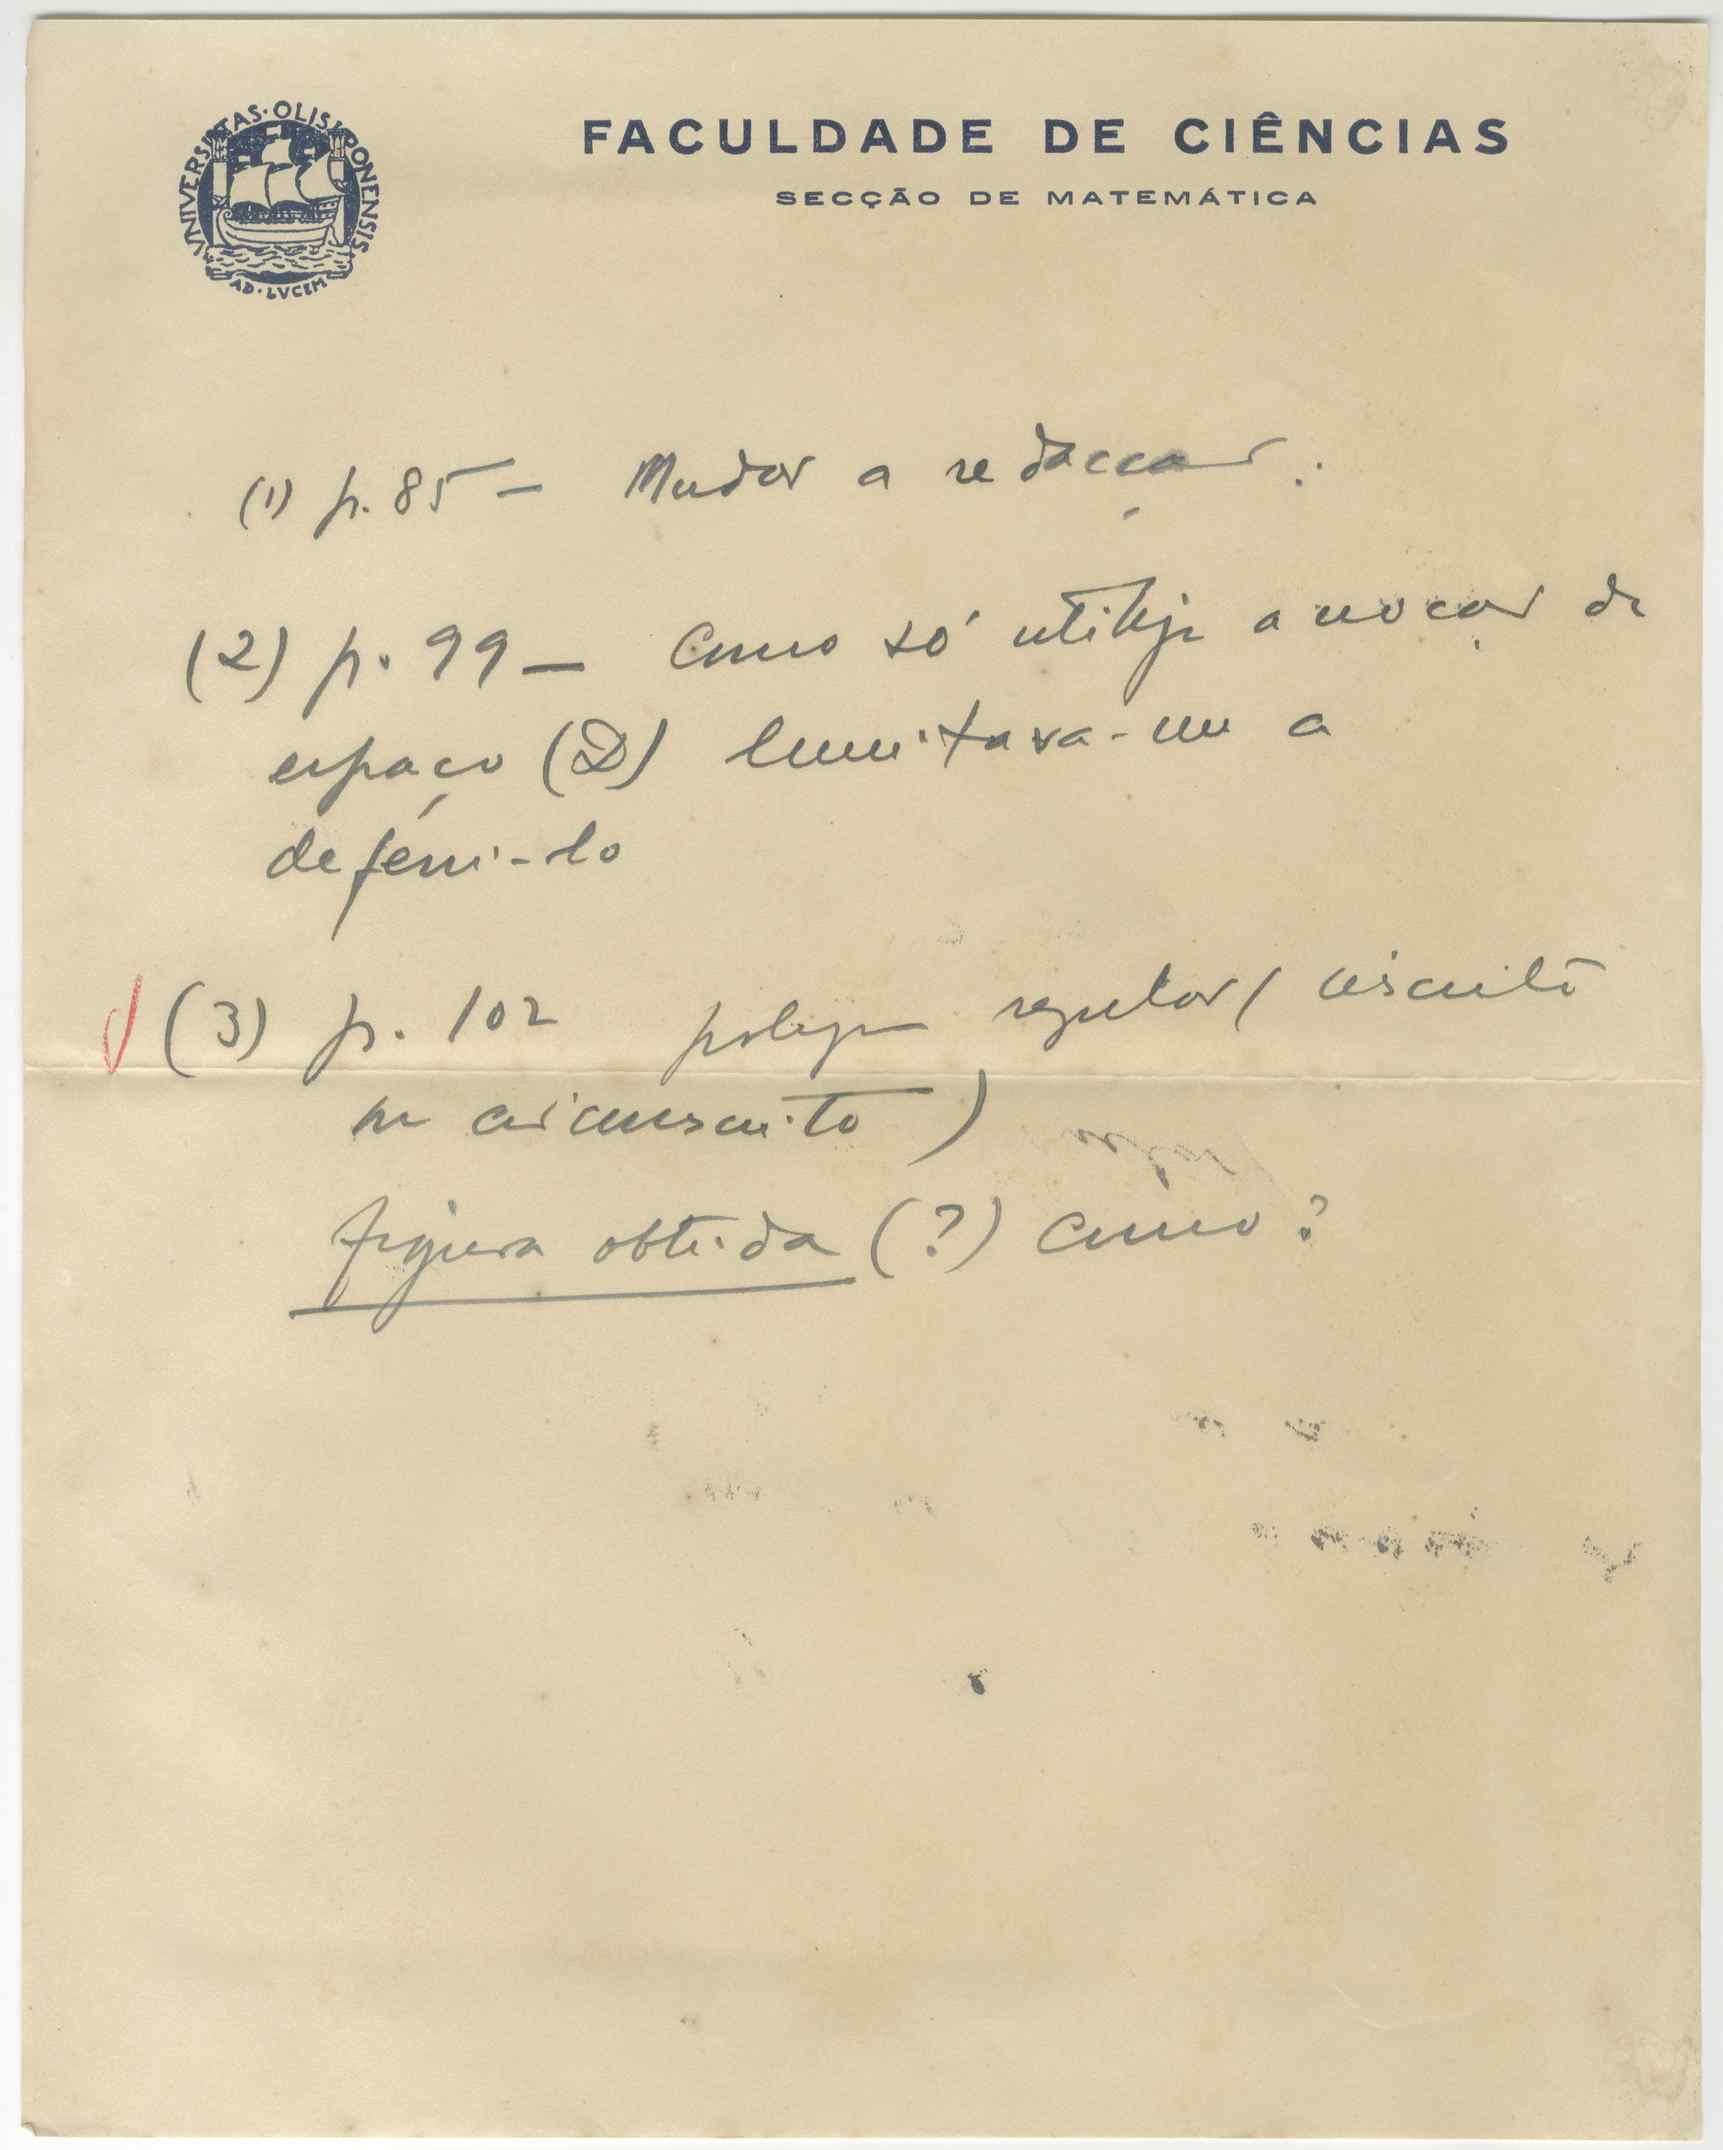 VNIVERSITAS·OLISIPONENSIS
AD·LVCEM
FACULDADE DE CIÊNCIAS
SECÇÃO DE MATEMÁTICA
(1) p. 85 – Mudar a redacção.
(2) p. 99 – Como só utiliza a noção de
espaço (D) limitava-me a
defini-lo
(3) p. 102 polígono regular (inscrito
ou circunscrito)
figura obtida (?) como?